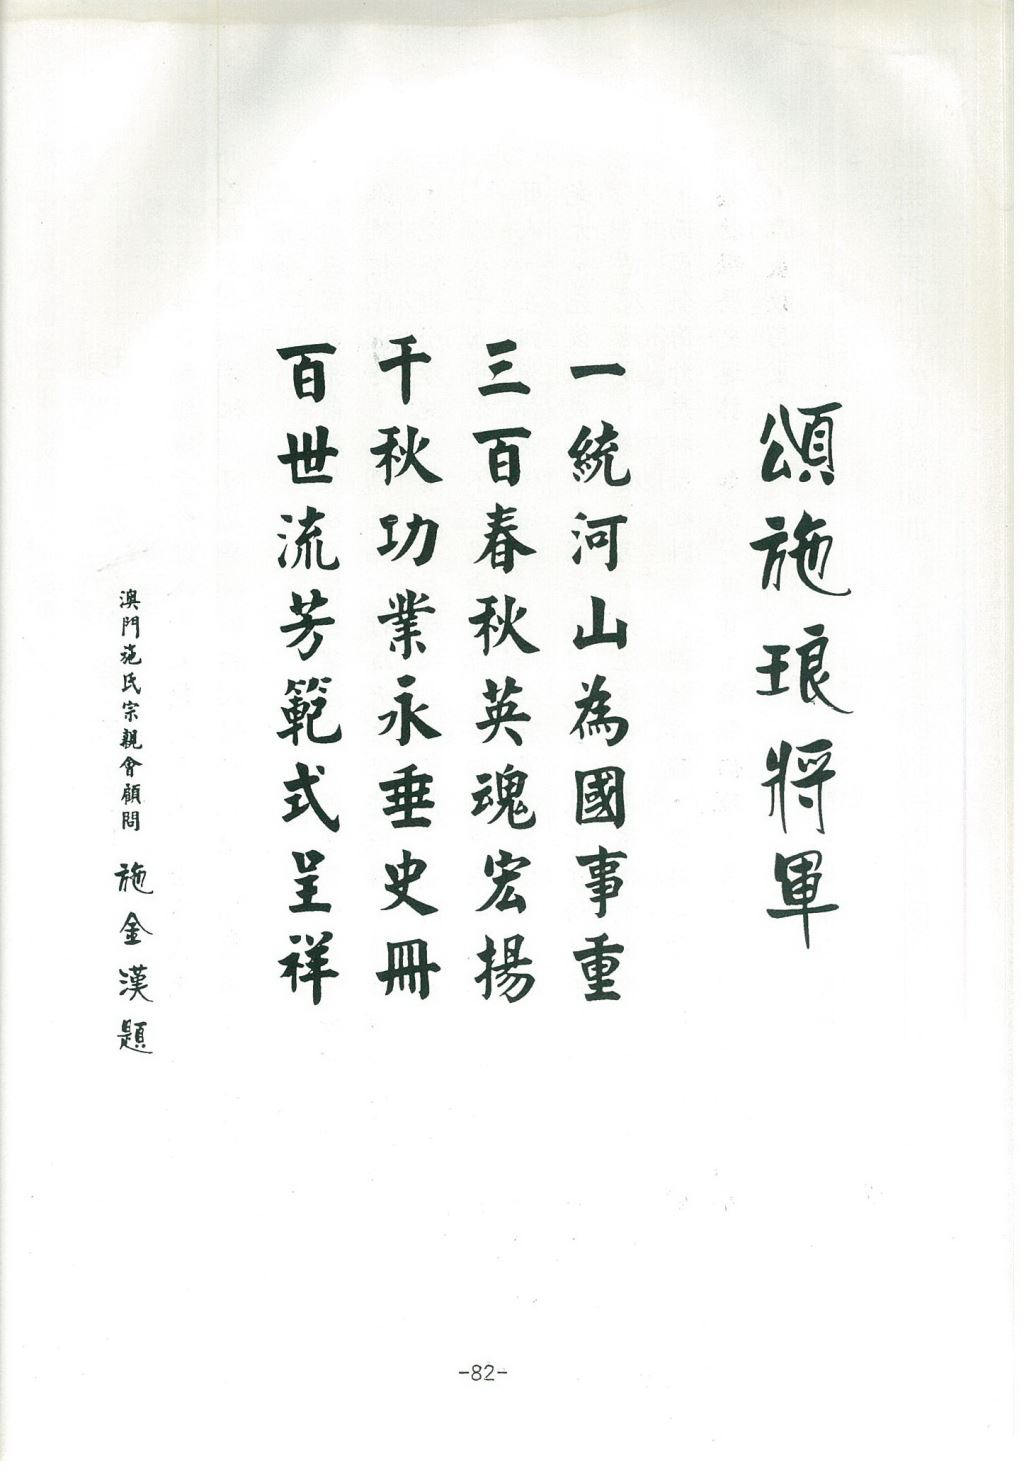 頌施琅將軍
一統河山為國事重
三百春秋英魂宏揚
千秋功業永垂史冊
百世流芳範式呈祥
澳門施氏宗親會顧問 施金漢題
-82-